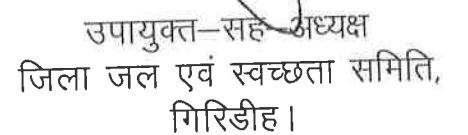 उपायुक्त–सह–अध्यक्ष
जिला जल एवं स्वच्छता समिति,
गिरिडीह।